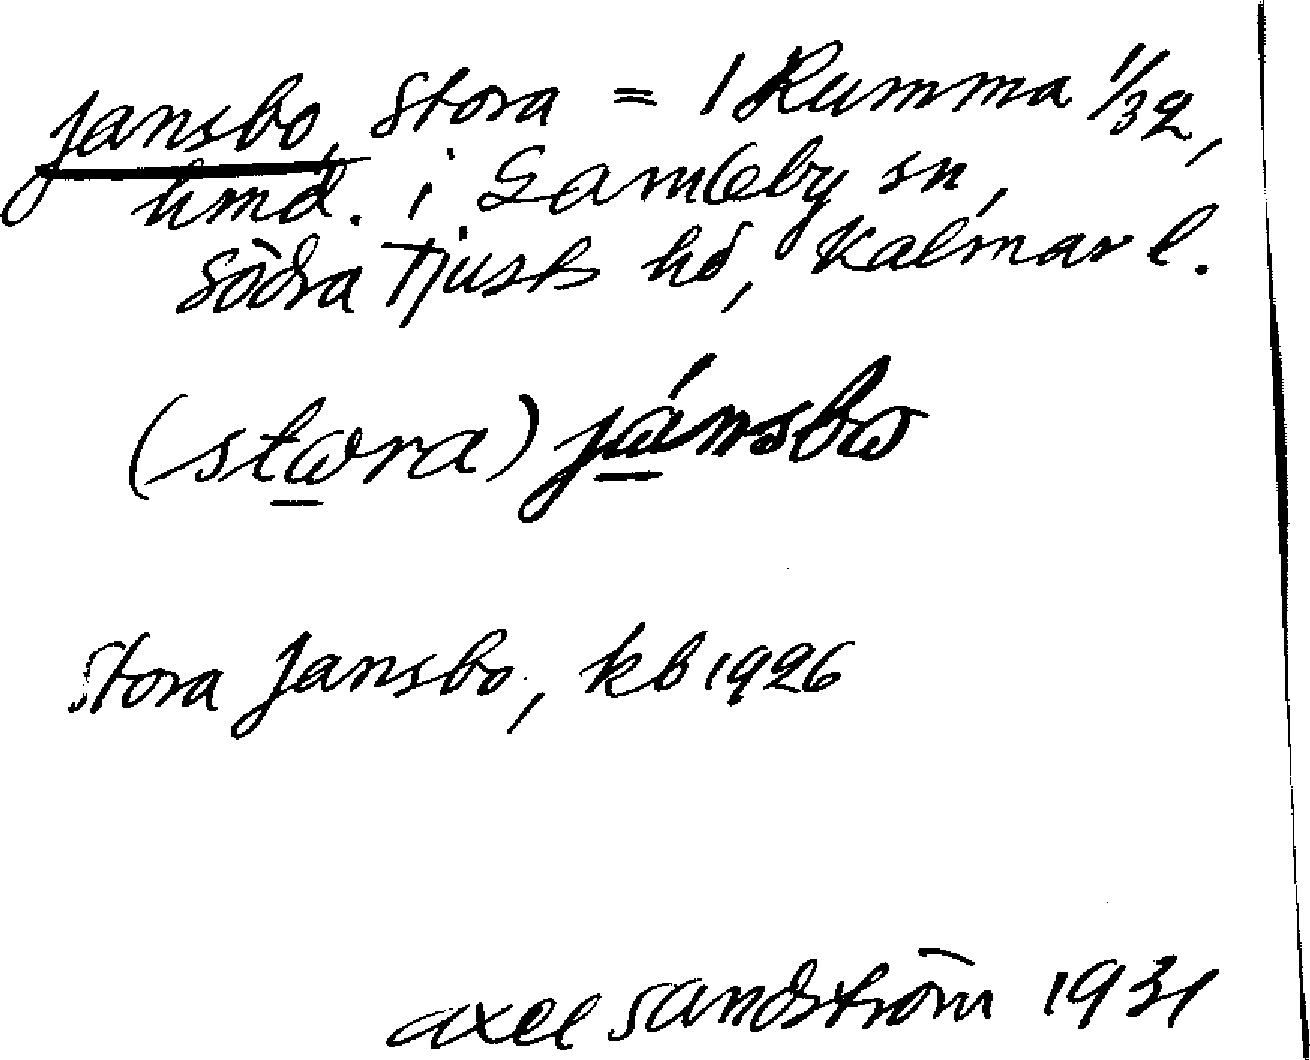 Jansbo, Stora = 1 Rumma 1/32,
hmd. i Gamleby sn,
Södra Tjusts hd, Kalmar l.
(stωra) jánsbω
Stora Jansbo, kb 1926
Axel Sandström 1931